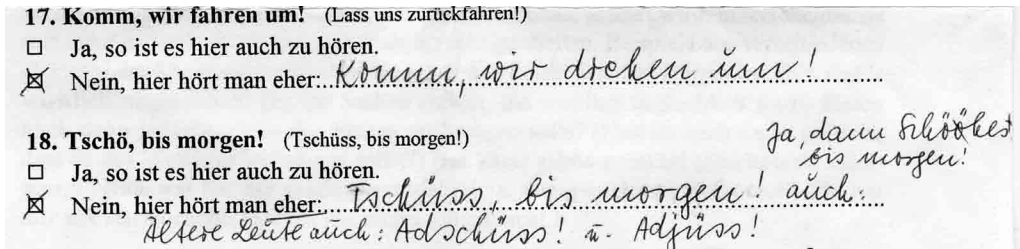 17. Komm, wir fahren um! (Lass uns zurückfahren!)
☐ Ja, so ist es hier auch zu hören.
☒ Nein, hier hört man eher: Komm, wir drehen um!
18. Tschö, bis morgen! (Tschüss, bis morgen!)
☐ Ja, so ist es hier auch zu hören.
☒ Nein, hier hört man eher: Tschüss, bis morgen! auch:
Ja, dann Schöökes
bis morgen!
Ältere Leute auch: Adschüss! u. Adjüss!